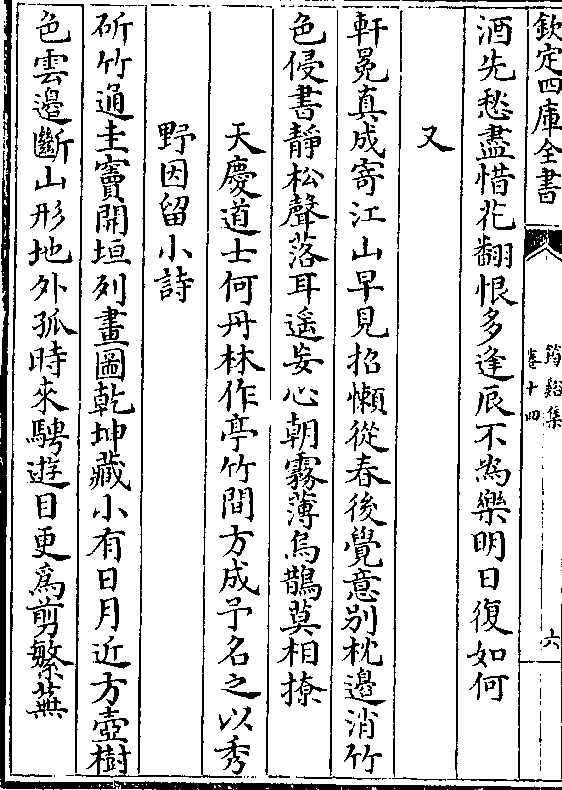 欽定四庫全書
筠谿集
卷十四
六
酒先愁盡惜花翻恨多逢辰不為樂明日復如何
又
軒冕真成寄江山早見招懶從春後覺意别枕邊消竹
色侵書靜松聲落耳遙妄心朝霧薄烏鵲莫相撩
天慶道士何丹林作亭竹間方成予名之以秀
野因留小詩
斫竹通圭竇開垣列畫圖乾坤藏小有日月近方壺樹
色雲邉斷山形地外孤時來騁遊目更爲剪繁蕪